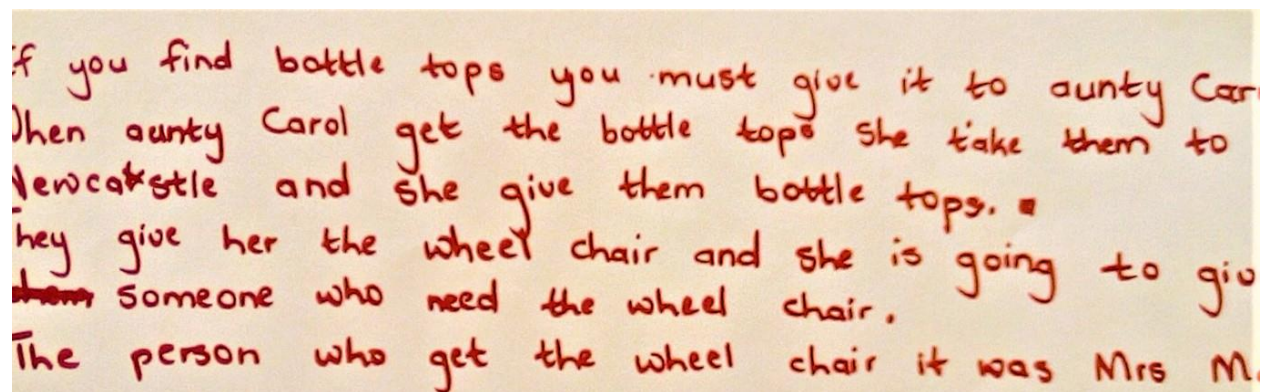 If you find bottle tops you must give it to aunty Car
When aunty Carol get the bottle tops she take them to
Newcastle and she give them bottle tops.
They give her the wheel chair and she is going to giv
someone who need the wheel chair.
The person who get the wheel chair it was Mrs M.